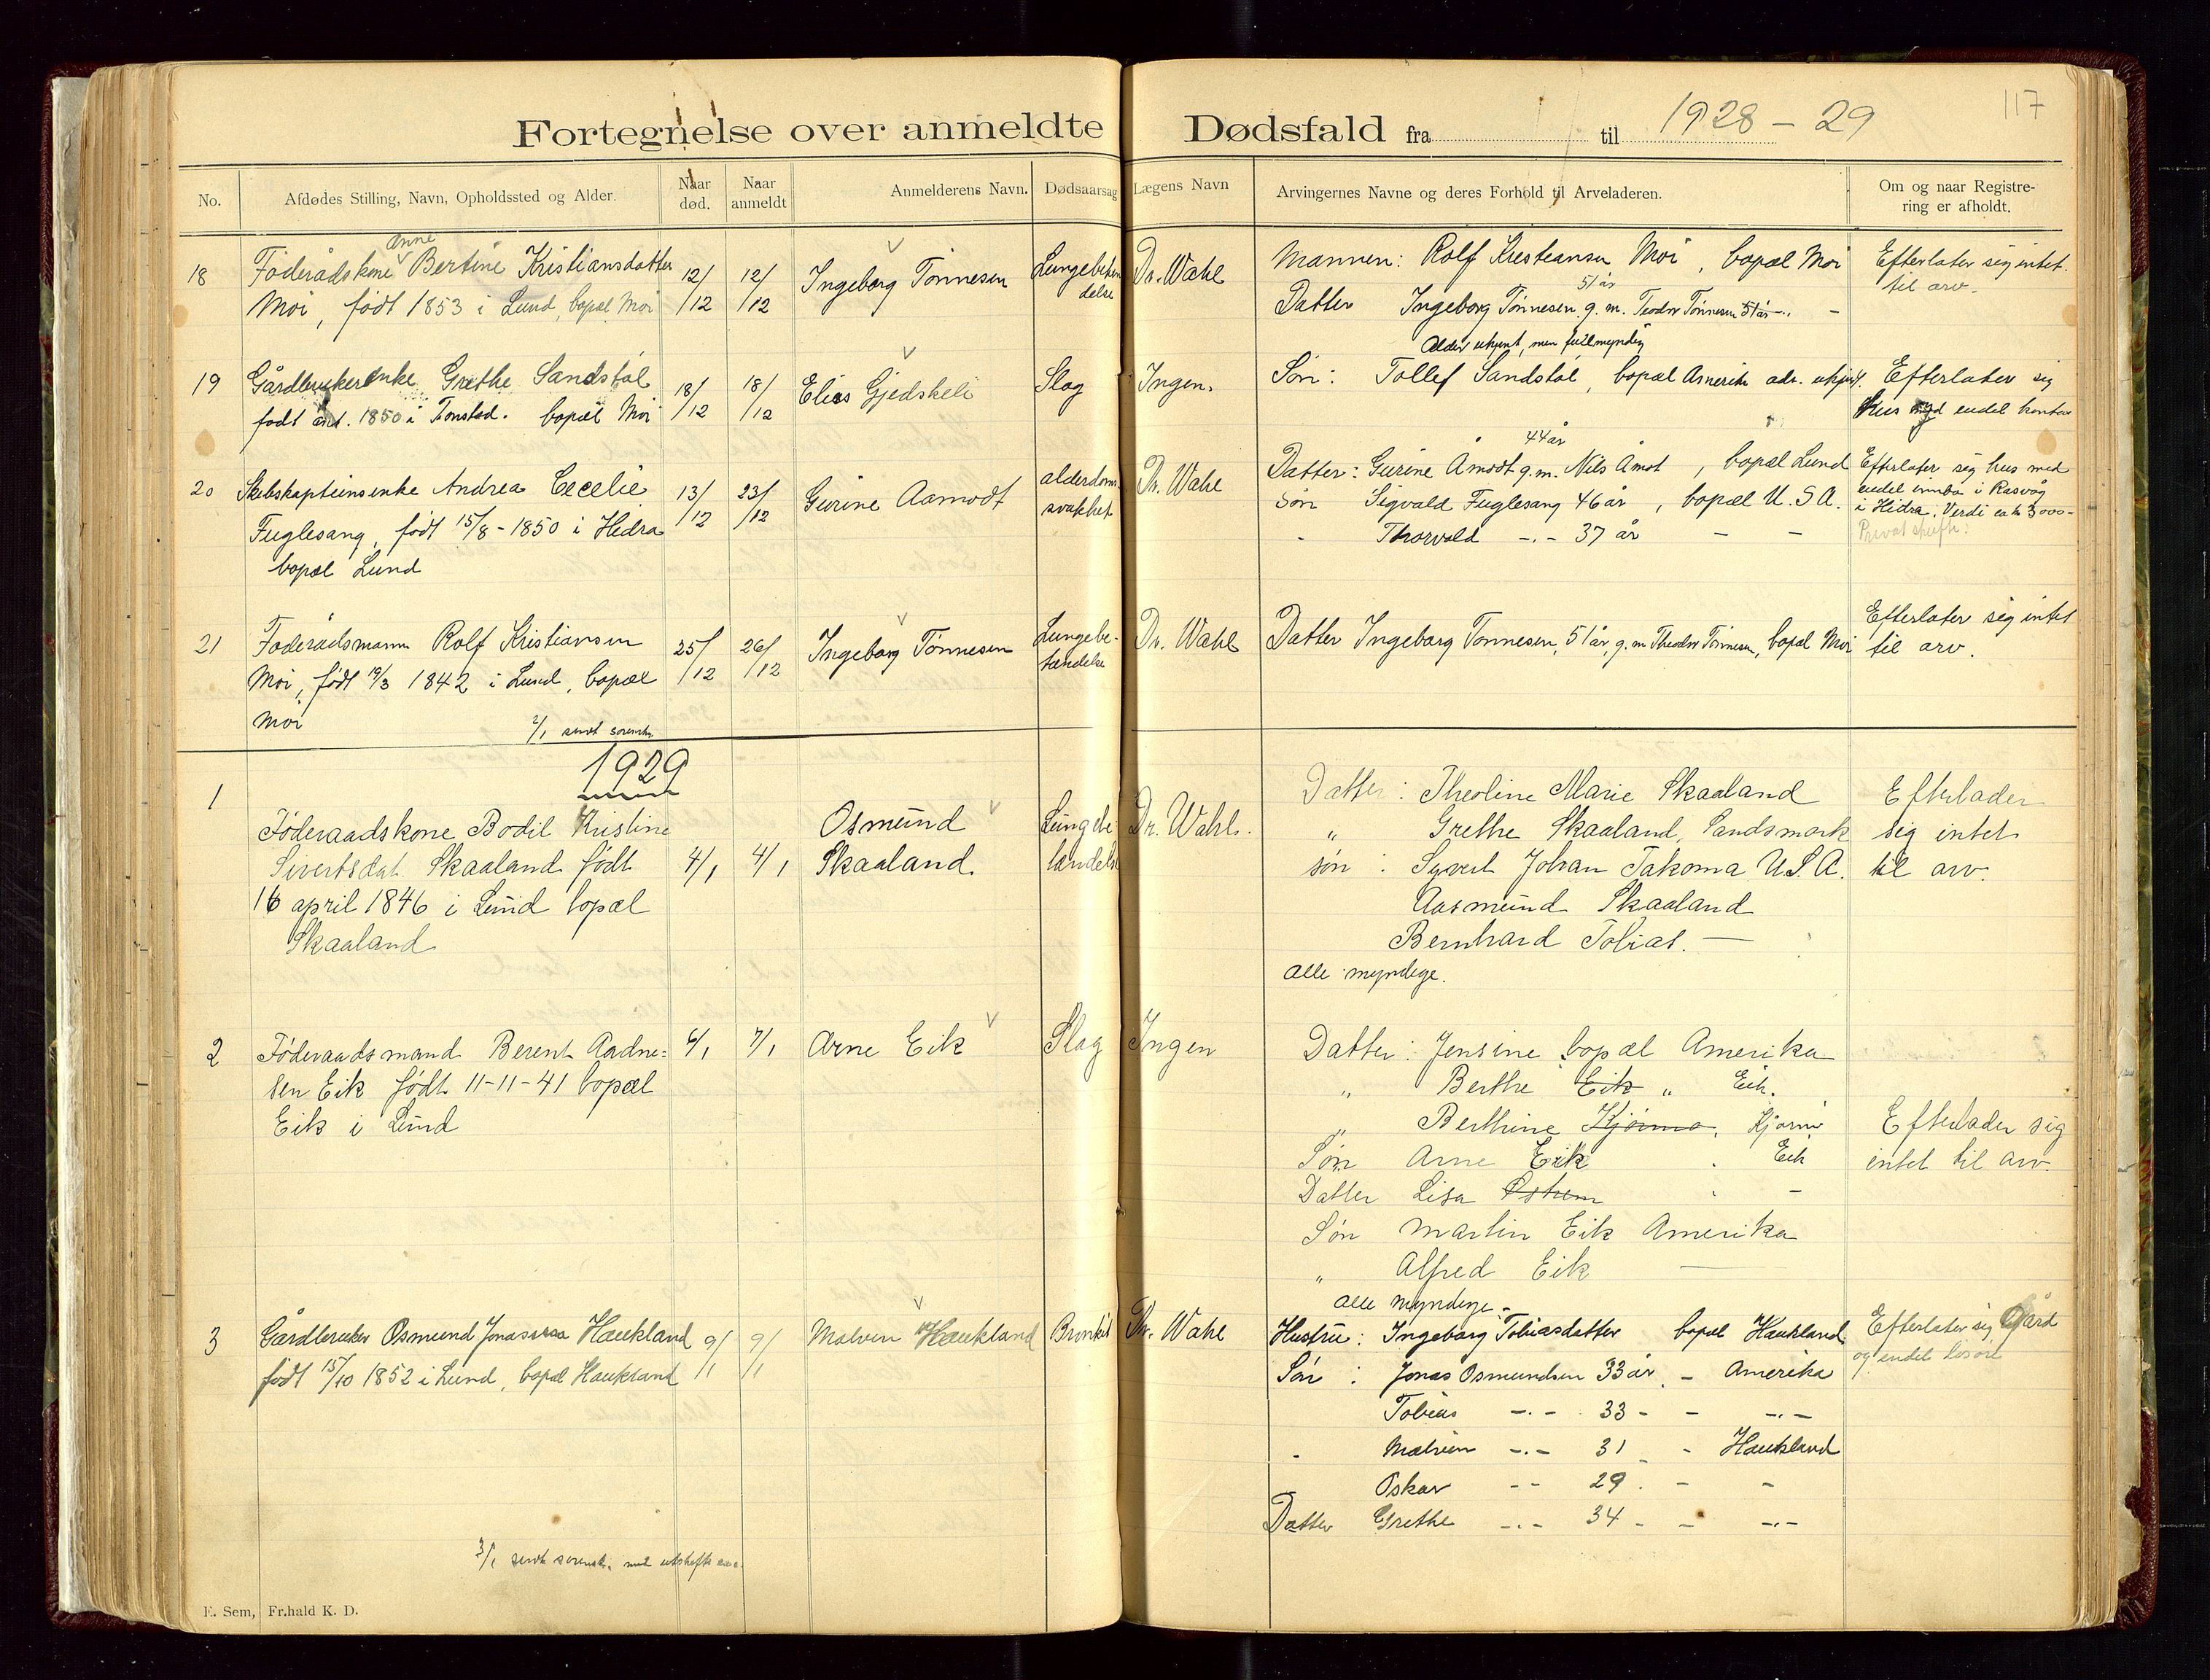 117
Fortegnelse over anmeldte Dødsfald fra til 1928 - 29
No. Afdødes Stilling, Navn, Opholdssted og Alder. Naar død. Naar anmeldt Anmelderens Navn. Dødsaarsag Lægens Navn Arvingernes Navne og deres Forhold til Arveladeren. Om og naar Registre-ring er afholdt.
Anne
18 Føderådskone Bertine Kristiansdatter 12/12 12/12 Ingeborg Tønnesen Lungebeten
delse
Moi, født 1853 i Lund, bopæl Moi
Dr. Wahl
Mannen: Rolf Kristiansen Moi, bopæl Moi
51 år
Datter Ingeborg Tønnesen g. m. Teodor Tønnesen 51 år
Efterlater sig intet
til arv.
Alder ukjent, men fullmyndig
19 Gårdbrukerenke Grethe Sandstøl 18/12 18/12 Elias Gjedskeli Slag Ingen.
født ant. 1850 i Tonstad. bopæl Moi
Søn: Tollef Sandstøl, bopæl Amerika adr. ukjent.
Efterlater sig
hus med endel kontan
20 Skibskapteinsenke Andrea Cecelie 13/12 23/12 Gurine Aamodt alderdoms
svakhet
Fuglesang, født 15/8 - 1850 i Hidra
bopæl Lund
Dr. Wahl
44 år
Datter: Gurine Åmodt g.m. Nils Åmot, bopæl Lund
Søn Sigvald Fuglesang 46 år, bopæl U.S.A.
- Thorvald -.- 37 år - -
Efterlater sig hus med
endel innbo i Rasvåg
i Hidra. Verdi ca kr 3000-
Privat skifte.
21 Føderådsmann Rolf Kristiansen 25/12 26/12 Ingeborg Tønnesen Lungebe-
tændelse
Moi, født 19/3 1842 i Lund, bopæl
Moi
Dr. Wahl
Datter Ingeborg Tønnesen, 51 år, g. m Theodor Tønnesen, bopæl Moi
Efterlater sig intet
til arv.
2/1 sendt sorensk.
1929
1
Føderaadskone Bodil Kristine
Sivertsdat. Skaaland født 4/1 4/1
16 april 1846 i Lund bopæl
Skaaland
Osmund
Skaaland.
Lungebe
tændelse
Dr. Wahl.
Datter: Theoline Marie Skaaland
" Grethe Skaaland, Sandsmark
søn: Syvert Johan Takoma U.S.A.
Aasmund Skaaland
Bernhard Tobias. —
alle myndige.
Efterlader
sig intet
til arv.
2 Føderaadsmand Berent Aadne= 6/1 7/1 Arne Eik Slag Ingen
sen Eik født 11-11-41 bopæl
Eik i Lund
Datter: Jensine bopæl Amerika
" Berthe Eik " Eik.
" Berthine Kjørmo. Kjørmo
Søn Arne Eik . Eik
Datter Lisa Østrem . -
Søn Martin Eik Amerika
" Alfred Eik —
alle myndige.
Efterlader sig
intet til arv.
3 Gårdbruker Osmund Jonassen Haukland 9/1 9/1 Malvin Haukland Bronkit Dr. Wahl
født 15/10 1852 i Lund, bopæl Haukland
Hustru: Ingeborg Tobiasdatter bopæl Haukland
Søn: Jonas Osmundsen 33 år - Amerika
Tobias -.- 33 - - -.-
- Malvin -.- 31 - - Haukland
Oskar -- 29 . - -
Datter Grethe -.- 34 - - -.-
Efterlater sig Gård
og endel løsøre
3/1 sendt sorensk. med utskifte
E. Sem, Fr.hald K. D.